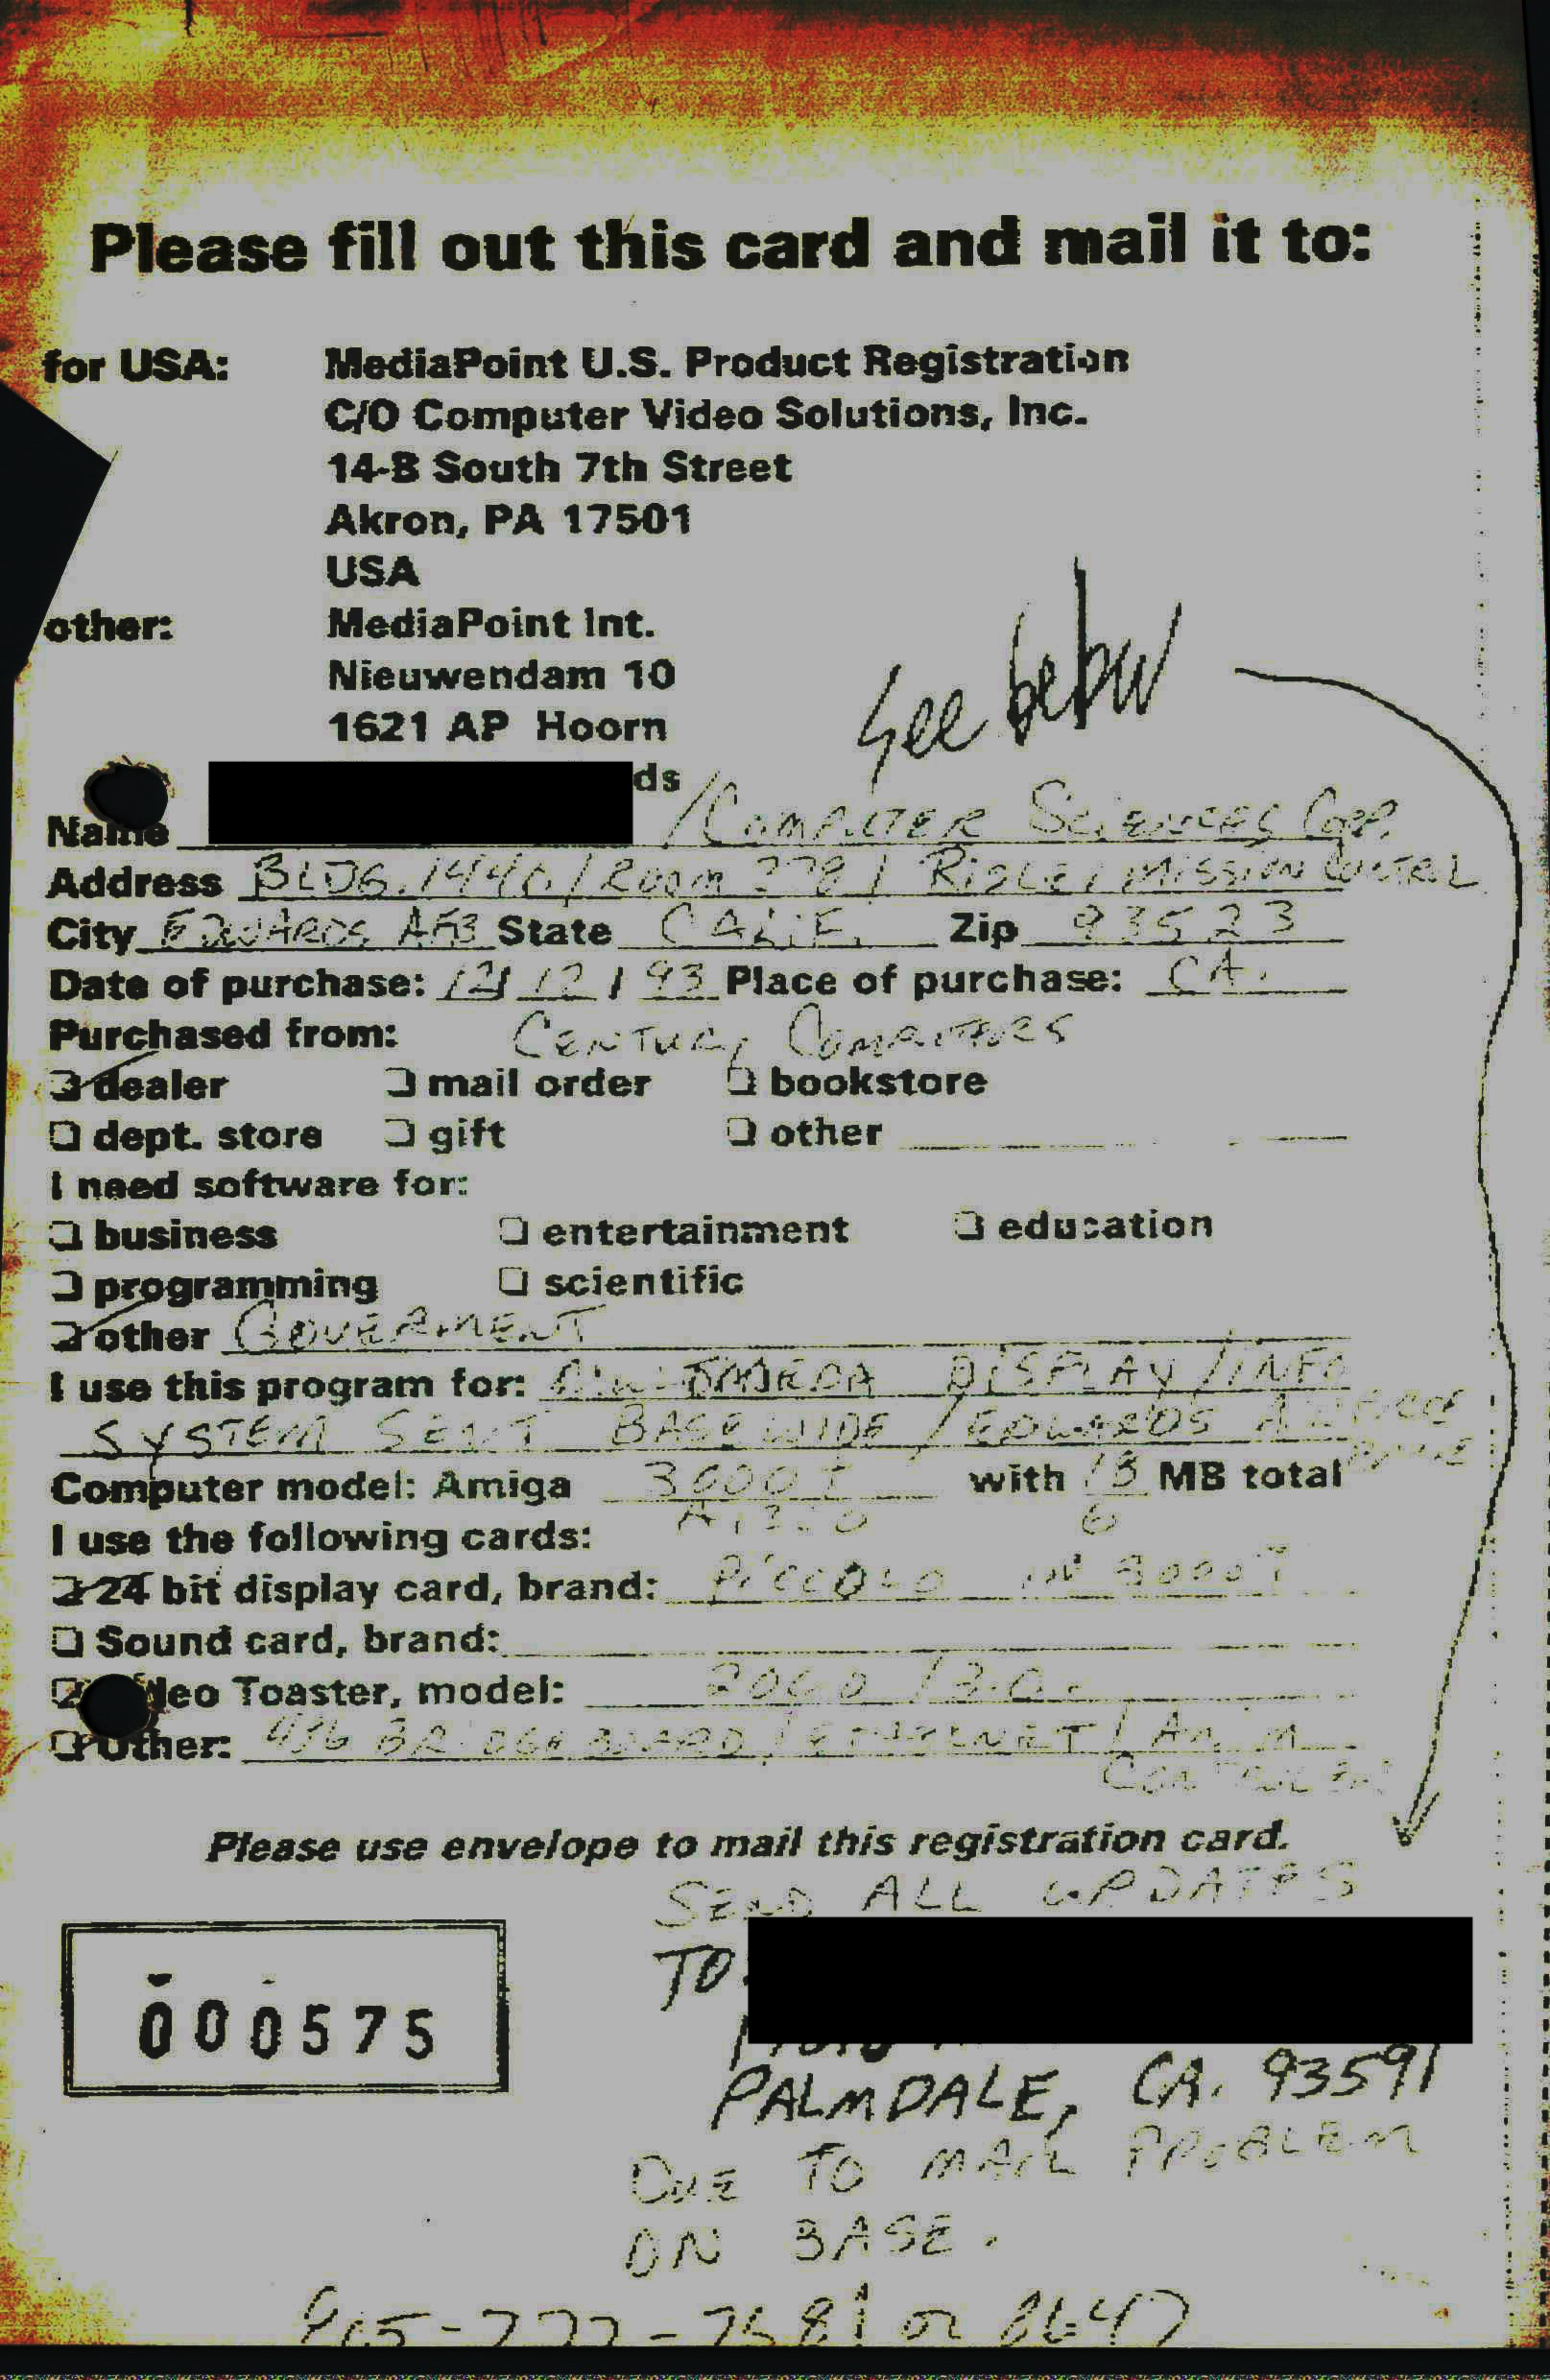 Please fill out this card and mail it to:
for USA: MediaPoint U.S. Product Registration
C/O Computer Video Solutions, Inc.
14-B South 7th Street
Akron, PA 17501
USA
other: MediaPoint Int.
Nieuwendam 10
1621 AP Hoorn
See below
ds
Name /COMPUTER SCIENCES CORP.
Address BLDG. 1440 / ROOM 278 / RIDLEY MISSION CONTROL
City EDWARDS AFB State CALIF. Zip 93523
Date of purchase: 12/12/93 Place of purchase: CA.
Purchased from: CENTURY COMPUTERS
dealer mail order bookstore
dept. store gift other
I need software for:
business entertainment education
programming scientific
other GOVERMENT
I use this program for: DISPLAY/INFO
SYSTEM SENT BASEWIDE / EDWARDS AIRFORCE
BASE
Computer model: Amiga 3000T with 18 MB total
6
I use the following cards:
24 bit display card, brand: PICCOLO IN 3000T
Sound card, brand:
deo Toaster, model:
Other: BRIDGEBOARD / ETHERNET /
CONTROLLER
Please use envelope to mail this registration card.
SEND ALL UPDATES
TO
PALMDALE, CA. 93591
DUE TO MAIL PROBLEM
ON BASE.
000575
or 8647